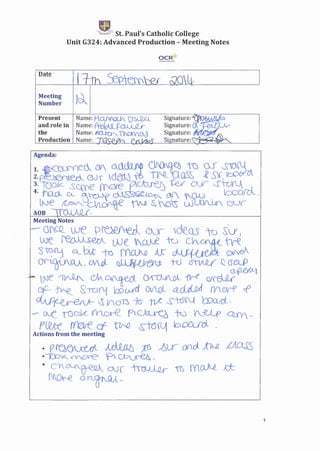 St. Paul's Catholic College
Unit G324: Advanced Production – Meeting Notes
OCR
Date
17th September 2014
Meeting
Number
12
Present
and role in
the
Production
Name: Hannah Signature:
Name: Signature:
Name: Signature:
Name: Joseph Signature:
Agenda:
1. on adding changes to our story
2. presented our ideas to the class & Sir board
3. Took some more pictures for our story
4. had a group discussion on how board.
we can change the shots within our
AOB Trailer
Meeting Notes
- Once we presented our ideas to Sir,
we realised we have to change the
story a bit to make it different and
original, and different to other soap
operas
- we then changed around the order
of the story board and added more
different shots to the story board.
- we took more pictures to help com-
plete more of the story board.
Actions from the meeting
• presented ideas to sir and the class
• Took more pictures.
• changed our trailer to make it
more original.